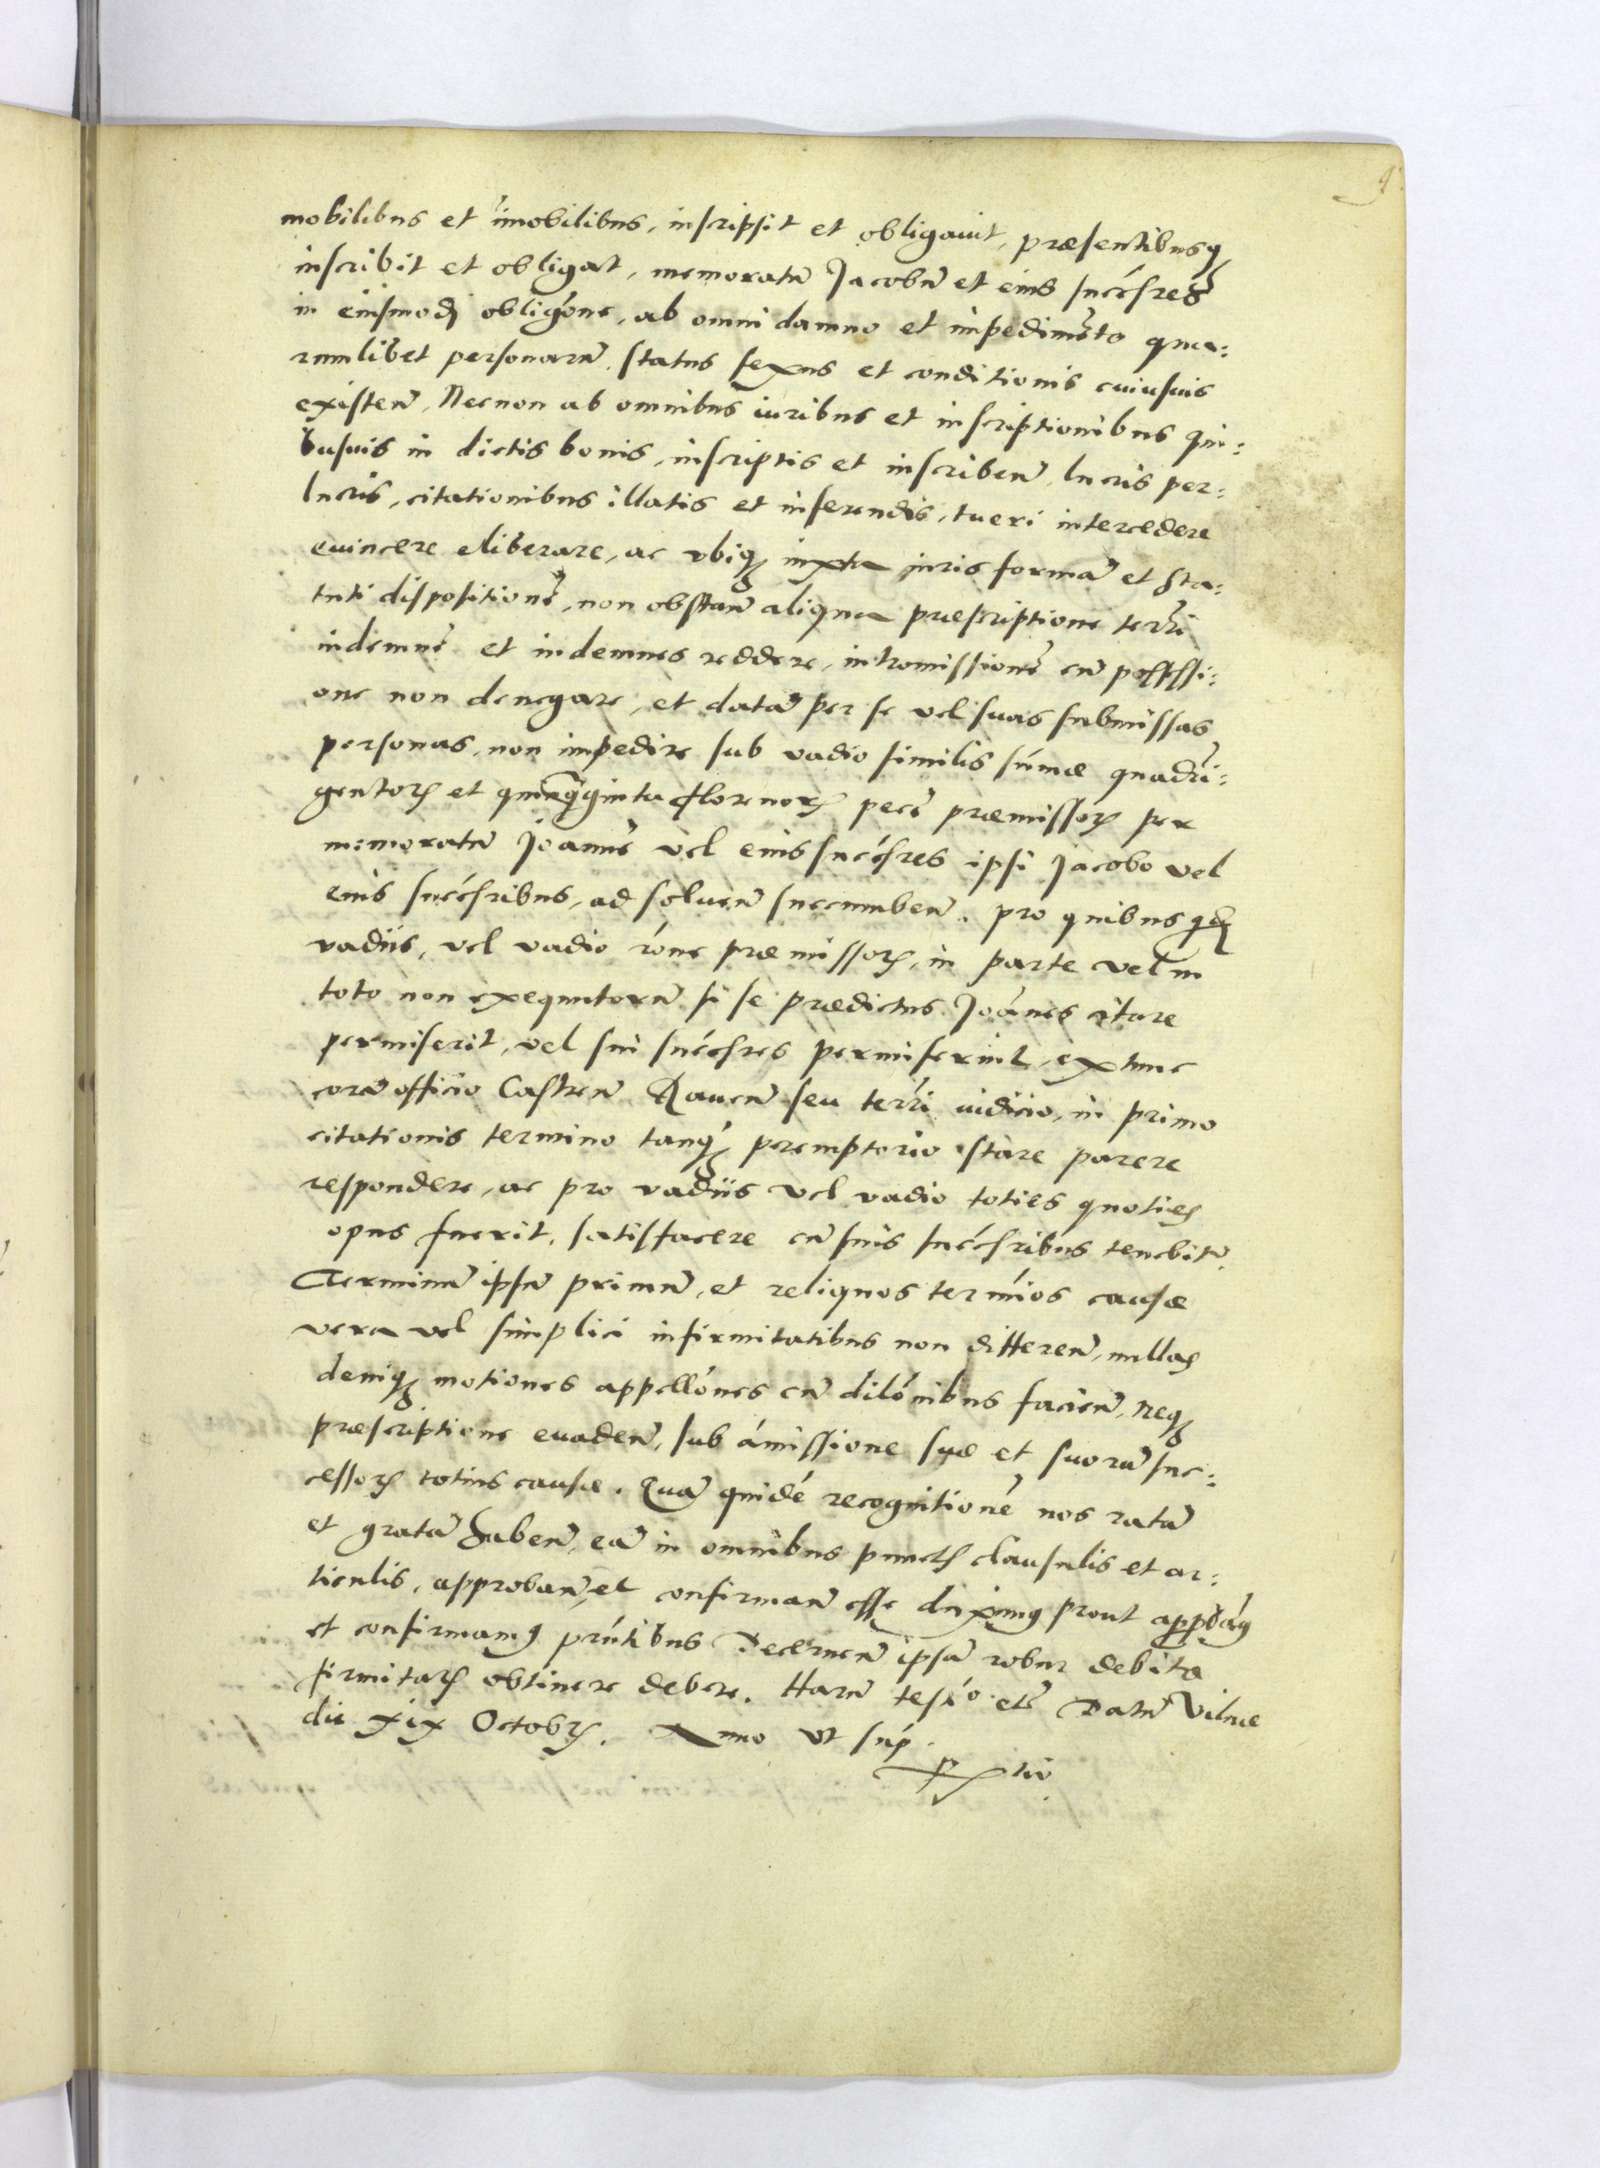 9
mobilibus et im̃obilibus, inscripsit et obligauit, præsentibusq₃
inscribit et obligat, memoratũ Jacobũ et eius succes̃res
in eiusmodj obligõne, ab omni damno et impedimẽto qua:
rumlibet personarũ, status sexus et conditionis cuiusuis
existeñ, Necnon ab omnibus iuribus et inscriptionibus qui:
busuis in dictis bonis, inscriptis et inscribeñ, lucris per:
lucris, citationibus illatis et inferendis, tueri intercedere
euincere eliberare, ac vbiq₃ iuxta juris formã et sta:
tuti dispositionẽ, non obstañ aliqua præscriptione terri
indemnẽ et indemnes reddere, intromissionẽ cũ possessi:
one non denegare, et datã per se vel suas submissas
personas, non impedire sub vadio similis sum̃æ quadri:
gentorꝝ et quinquaginta florenorꝝ pecũ præmissorꝝ per
memoratũ Joannẽ vel eius succes̃res ipsi Jacobo vel
eius succes̃ribus, ad solueñ succumbeñ. pro quibus
vadiis, vel vadio rõne præmissorꝝ, in parte vel in
toto non exequutorũ si se prædictus Joãnes citare
permiserit, vel sui succes̃res permiserint, extunc
corã officio Castreñ Raueñ seu terri iudicio, in primo
citationis termino tanq₃ peremptorio stare parere
respondere, ac pro vadiis vel vadio toties quoties
opus fuerit, satisfacere cũ suis succes̃ribus tenebitũ.
Terminũ ipsũ primũ, et reliquos termĩos causæ
vera vel simplici infirmitatibus non differeñ, nullas
deniq₃ motiones appellõnes cũ dilõnibus facieñ, neq₃
præscriptione euadeñ, sub ãmissione suæ et suorũ suc:
cessorꝝ totius causæ. Quã quidẽ recognitionẽ nos ratã
et gratã habeñ, eã in omnibus punctꝭ clausulis et ar:
ticulis, approbañ et confirmañ esse duximꝰ prout appbãmꝰ
et confirmamꝰ pñtibus Decerneñ ipsã robur debitæ
firmitatꝭ obtinere debere. Harũ testĩo etc̃ Datũ Vilnæ
die xix Octobrꝭ. Anno Vt sup̃.